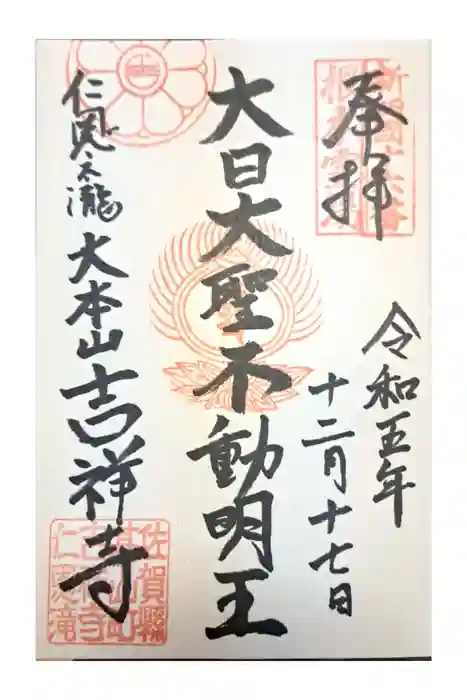 奉拝
令和五年
十二月十七日
大日大聖不動明王
仁恩之瀧
大本山吉祥寺
佐賀縣
仁恩滝